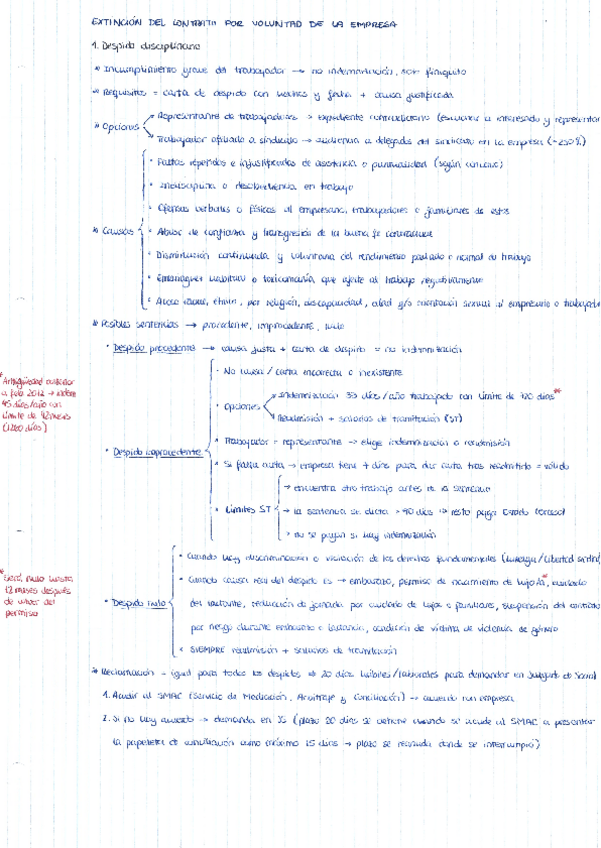 EXTINCIÓN DEL CONTRATO POR VOLUNTAD DE LA EMPRESA
1. Despido disciplinario
* Incumplimiento grave del trabajador → no indemnización, sólo finiquito
* Requisitos = carta de despido con hechos y fecha + causa justificada
* Opciones
Representante de trabajadores → expediente contradictorio (escuchar a interesado y representan
Trabajador afiliado a sindicato → audiencia a delegados del sindicato en la empresa (-250%)
* Causas
· Faltas repetidas e injustificadas de asistencia o puntualidad (según convenio)
· Indisciplina o desobediencia en trabajo
· Ofensas verbales o físicas al empresario, trabajadores o familiares de estos
· Abuso de confianza y transgresión de la buena fe contractual
· Disminución continuada y voluntaria del rendimiento pactado o normal de trabajo
· Embriaguez habitual o toxicomanía que afecte al trabajo negativamente
· Acoso étnico, por religión, discapacidad, edad y/o orientación sexual al empresario o trabajado
* Posibles sentencias → procedente, improcedente, nulo
· Despido procedente → causa justa + carta de despido = no indemnización
· Despido improcedente
· No causa / carta incorrecta o inexistente
· Opciones
Indemnización 33 días/año trabajado con límite de 720 días*
Readmisión + salarios de tramitación (ST)
· Trabajador = representante → elige indemnización o readmisión
· Si falta carta → empresa tiene 7 días para dar carta tras readmitirlo = válido
· Límites ST
→ encuentra otro trabajo antes de la sentencia
→ la sentencia se dicta > 90 días → resto paga Estado
→ no se pagan si hay indemnización
* Antigüedad anterior
a feb 2012 → indem
45 días/año con
límite de 42 meses
(1260 días)
· Despido nulo
· Cuando hay discriminación o violación de los derechos fundamentales (huelga/libertad sindical
· Cuando causa real del despido es → embarazo, permiso de nacimiento de hijo/a*, cuidado
del lactante, reducción de jornada por cuidado de hijos o familiares, suspensión del contrato
por riesgo durante embarazo o lactancia, condición de víctima de violencia de género
· SIEMPRE readmisión + salarios de tramitación
* Será nulo hasta
12 meses después
de volver del
permiso
* Reclamación = igual para todos los despidos → 20 días hábiles/laborales para demandar en Juzgado de Social
1. Acudir al SMAC (Servicio de Mediación, Arbitraje y Conciliación) → acuerdo con empresa
2. Si no hay acuerdo → demanda en JS (plazo 20 días se detiene cuando se acude al SMAC a presentar
la papeleta de conciliación como máximo 15 días → plazo se reanuda donde se interrumpió)